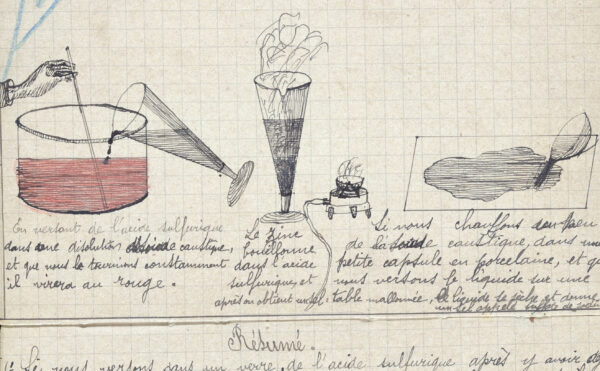 En versant de l'acide sulfurique
dans une disolution de soude caustique,
et que nous la tournions constamment
il virera au rouge.
Le zinc
bouillonne
dans l'acide
sulfurique, et
après on obtient un sel.
Si nous chauffons un peu
de la soude caustique, dans une
petite capsule en porcelaine, et que
nous versons le liquide sur une
table mallonnée, le liquide se sèche et donne
un sel appelé sulfate de soude
Résumé.
1: Si nous versons dans un verre, de l'acide sulfurique après y avoir de